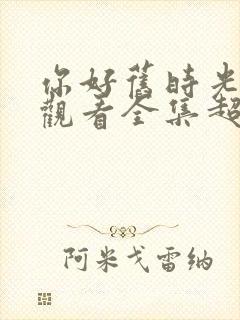 你好舊時光
觀看全集超
阿米戈雷纳